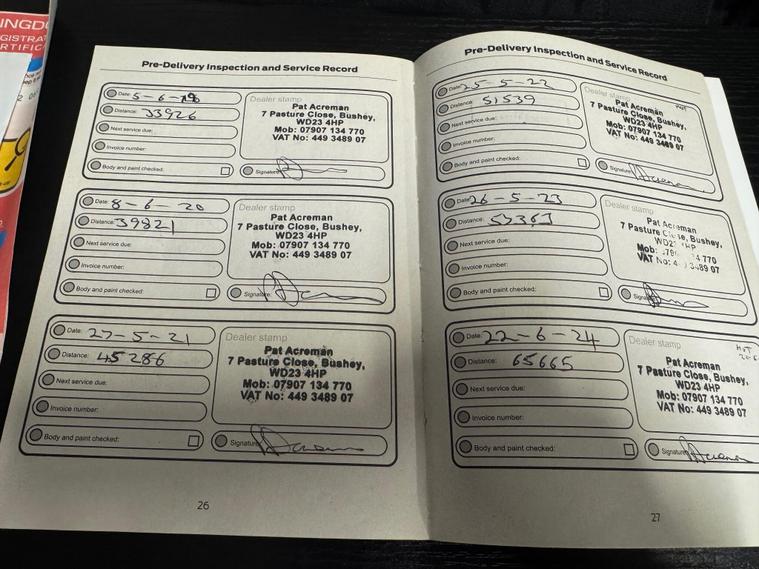 INGDO
GISTRA
RTIFIC
Pre-Delivery Inspection and Service Record
Date: 5-6-18
Distance: 33926
Next service due:
Invoice number:
Body and paint checked:
Dealer stamp
Pat Acreman
7 Pasture Close, Bushey,
WD23 4HP
Mob: 07907 134 770
VAT No: 449 3489 07
Signature
Date: 8-6-20
Distance: 39821
Next service due:
Invoice number:
Body and paint checked:
Dealer stamp
Pat Acreman
7 Pasture Close, Bushey,
WD23 4HP
Mob: 07907 134 770
VAT No: 449 3489 07
Signature
Date: 27-5-21
Distance: 45286
Next service due:
Invoice number:
Body and paint checked:
Dealer stamp
Pat Acreman
7 Pasture Close, Bushey,
WD23 4HP
Mob: 07907 134 770
VAT No: 449 3489 07
Signature
26
Pre-Delivery Inspection and Service Record
Date: 25-5-22
Distance: 51539
Next service due:
Invoice number:
Body and paint checked:
Dealer stamp
Pat Acreman
7 Pasture Close, Bushey,
WD23 4HP
Mob: 07907 134 770
VAT No: 449 3489 07
Signature
Date: 26-5-23
Distance:
Next service due:
Invoice number:
Body and paint checked:
Dealer stamp
Pat Acreman
7 Pasture Close, Bushey,
WD23 4HP
VAT No: 4 3489 07
Date: 22-6-24
Distance: 65665
Next service due:
Invoice number:
Body and paint checked:
Dealer stamp
Pat Acreman
7 Pasture Close, Bushey,
WD23 4HP
Mob: 07907 134 770
VAT No: 449 3489 07
Signature
27